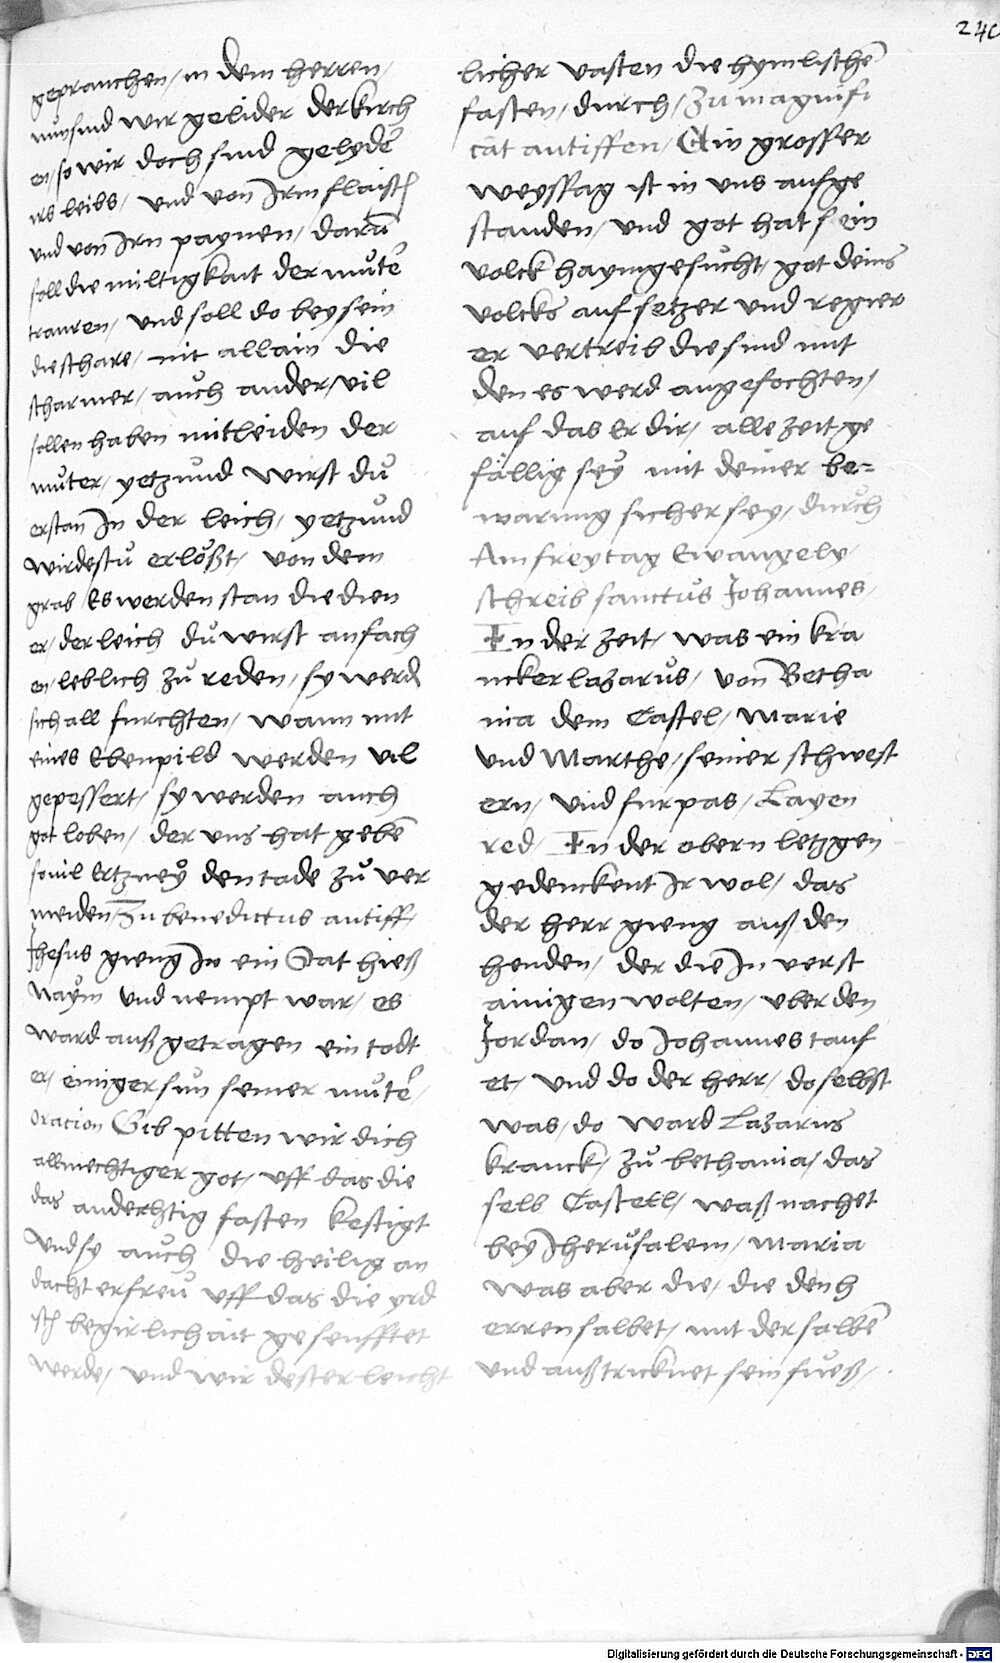 240
geprauchen/ in dem herren/
nun sind wir gelider der kirch
en/ so wir doch sind gelydẽ
irs leibs/ und von Irm flaisch
und von Irn paynen/ darũ
soll die miltigkait der mutẽ
trauren/ und soll do bey sein
die schare/ nit allain die
schar mer/ auch ander/ vil
sollen haben mitleiden der
muter/ yetzund wirst du
erstan In der leich/ yetzund
wirdestu erlößt/ von dem
grab/ Es werden stan die dien
er/ der leich du wirst anfach
en/ leblich zu reden/ sy werd
sich all furchten/ wann mit
eines Ebenpild werden vil
gepessert/ sy werden auch
got loben/ der uns hat gebẽ
sovil Ertzney den tade zu ver
meiden/ Zu benedictus antiff/
Jhesus gieng In ein Stat hieß
Naym und nempt war/ es
ward auß getragen ein todt
er/ einiger sun seiner mutẽ/
Oracion Gib pitten wir dich
allmechtiger got/ uff das die
das anderhtig fasten kestigt
und sy auch die heilig an
dacht erfreu uff das die yrd
sch begirlichait gesenfftet
werde/ und wir dester leicht
licher vasten die hymlischẽ
fasten/ durch/ Zu magnifi
cat antiffen/ Ain grosser
weyssag ist in uns aufge
standen/ und got hat sein
volck haymgesucht/ got deins
volcks auf setzer und regier
er vertreib die sind mit
den es werd angefochten/
auf das Er dir/ alle zeit ge
fällig sey mit deiner be=
warung sicher sey/ durch
Am freytag Ewangely/
schreib sanctus Johannes/
In der zeit/ was ein kra
ncker lazarus/ von Betha
nia dem Castel/ Marie
und Marthe/ seiner schwest
ern/ und furpas/ Layen
red/ In der obern letzgen
gedenckent Ir wol/ das
der herr gieng auß den
henden/ der die In verst
ainigen wolten/ uber den
Jordan/ do Johannes tauf
et/ und do der herr/ do selbst
was/ do ward Lazarus
kranck/ zu bethania/ das
selb Castell/ waß nachet
bey Jherusalem/ Maria
was aber die/ die den h
erren salbet/ mit der salbẽ
und außtricknet sein fueß/
Digitalisierung gefördert durch die Deutsche Forschungsgemeinschaft - DFG